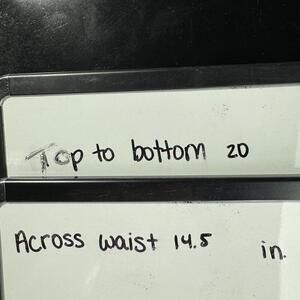 Top to bottom 20
Across waist 14.5 in.